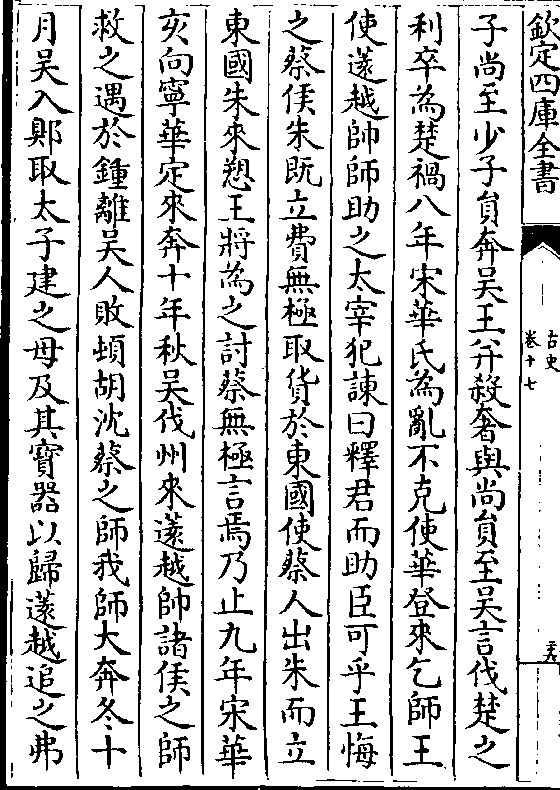 欽定四庫全書
古史
卷十七
子尚至少子員奔吳王並殺奢與尚員至吳言伐楚之
利卒為楚禍八年宋華氏為亂不克使華登來乞師王
使薳越帥師助之太宰犯諫曰釋君而助臣可乎王悔
之蔡侯朱既立費無極取貨於東國使蔡人出朱而立
東國朱來愬王將為之討蔡無極言焉乃止九年宋華
亥向寧華定來奔十年秋吳伐州來薳越帥諸侯之師
救之遇於鍾離吳人敗頓胡沈蔡之師我師大奔冬十
月吳入郹取太子建之母及其寶器以歸薳越追之弗